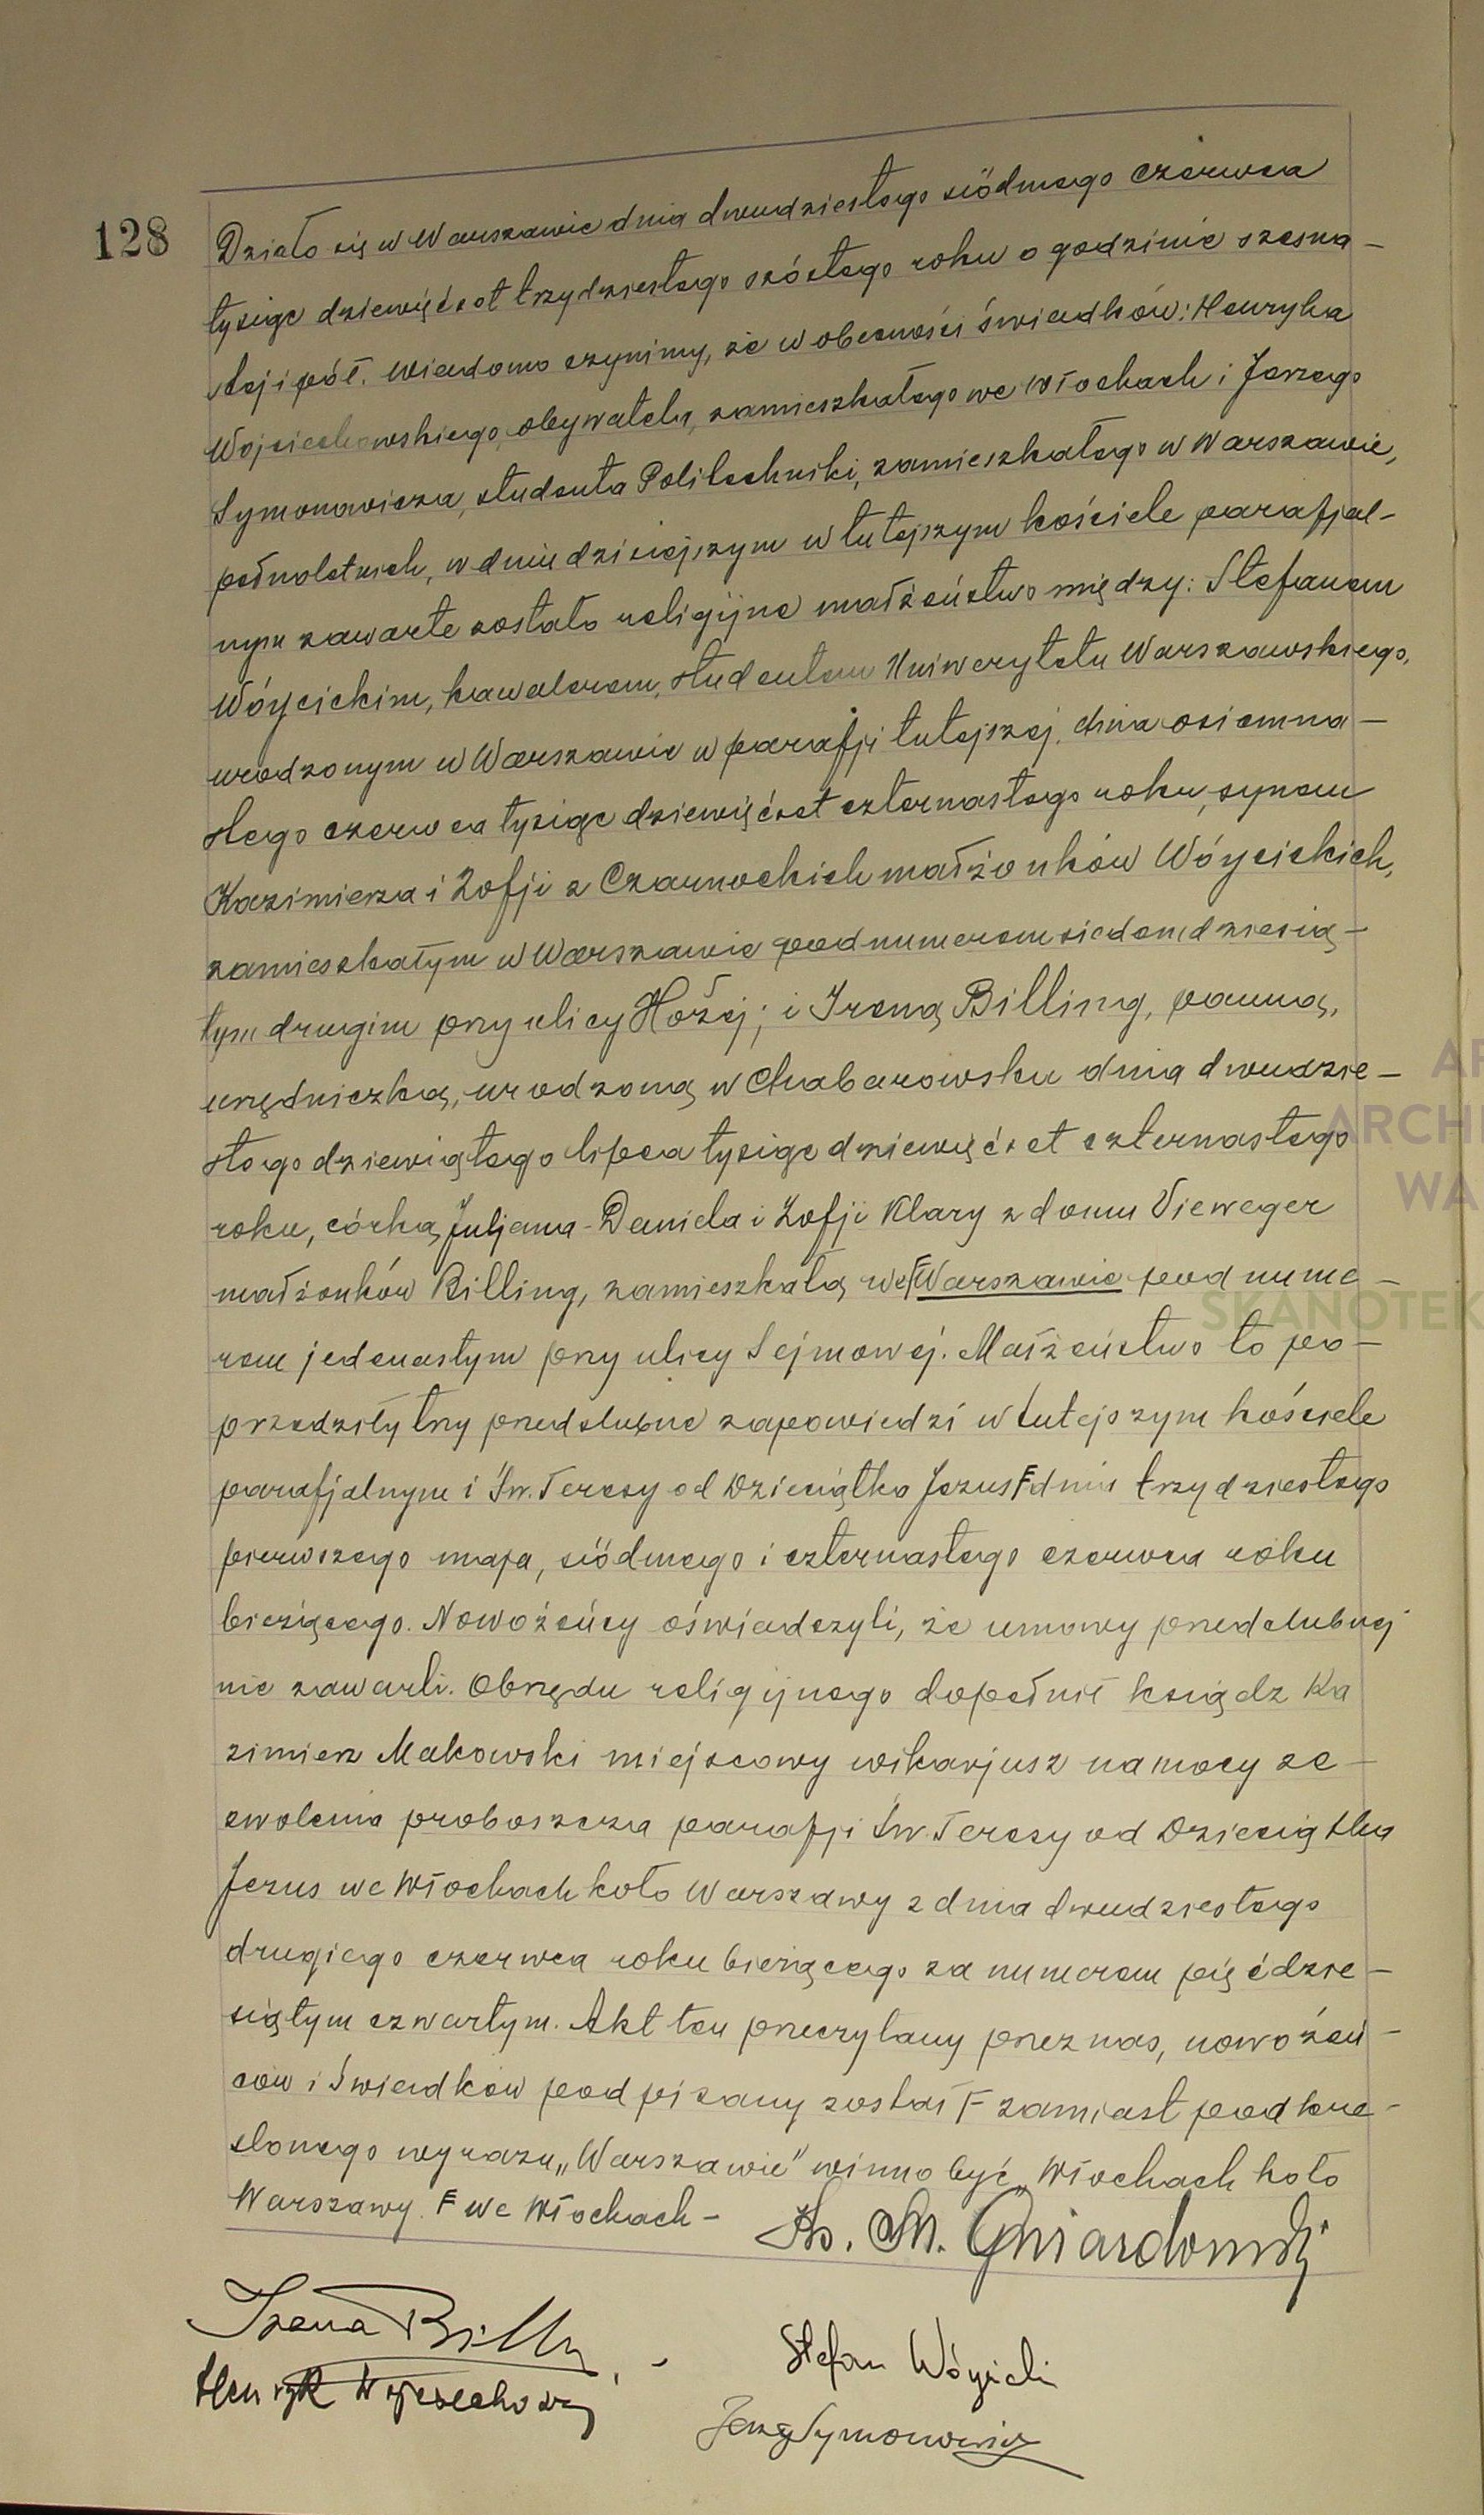 128
Działo się w Warszawie dnia dwudziestego siódmego czerwca
tysiąc dziewięćset trzydziestego szóstego roku o godzinie szesna-
stej i pół. Wiadomo czynimy, że w obecności świadków: Henryka
Wojciechowskiego, obywatela, zamieszkałego we Włochach i Jerzego
Symonowicza, studenta Politechniki, zamieszkałego w Warszawie,
pełnoletnich, w dniu dzisiejszym w tutejszym kościele parafjal-
nym zawarte zostało religijne małżeństwo między: Stefanem
Wóycickim, kawalerem, studentem Uniwerytetu Warszawskiego,
urodzonym w Warszawie w parafji tutejszej, dnia osiemna-
stego czerwca tysiąc dziewięćset czternastego roku, synem
Kazimierza i Zofji z Czarnockich małżonków Wóycickich,
zamieszkałym w Warszawie pod numerem siedemdziesią-
tym drugim przy ulicy Hożej; i Ireną Billing, panną,
urzędniczką, urodzoną w Chabarowsku dnia dwudzie-
stego dziewiątego lipca tysiąc dziewięćset czternastego
roku, córką Juljana-Daniela i Zofji Klary z domu Vieweger
małżonków Billing, zamieszkałą we Ƒ Warszawie pod nume-
rem jedenastym przy ulicy Sejmowej. Małżeństwo to po-
przedziły trzy przedślubne zapowiedzi w tutejszym kościele
parafjalnym i Św. Teresy od Dzieciątka Jezus Ƒ dnia trzydziestego
pierwszego maja, siódmego i czternastego czerwca roku
bieżącego. Nowożeńcy oświadczyli, że umowy przedślubnej
nie zawarli. Obrzędu religijnego dopełnił ksiądz Ka
zimierz Makowski miejscowy wikarjusz na mocy ze-
zwolenia proboszcza parafji Św. Teresy od Dzieciątka
Jezus we Włochach koło Warszawy z dnia dwudziestego
drugiego czerwca roku bieżącego za numerem pięćdzie-
siątym czwartym. Akt ten przeczytany przez nas, nowożeń-
ców i świadków podpisany został Ƒ zamiast podkre-
ślonego wyrazu „Warszawie" winno być „Włochach koło
Warszawy. Ƒ we Włochach-
Ks. M. Gniazdowski
Irena Billing
Stefan Wóycicki
Henryk Wojciechowski
Jerzy Symonowicz
SKANOTEK